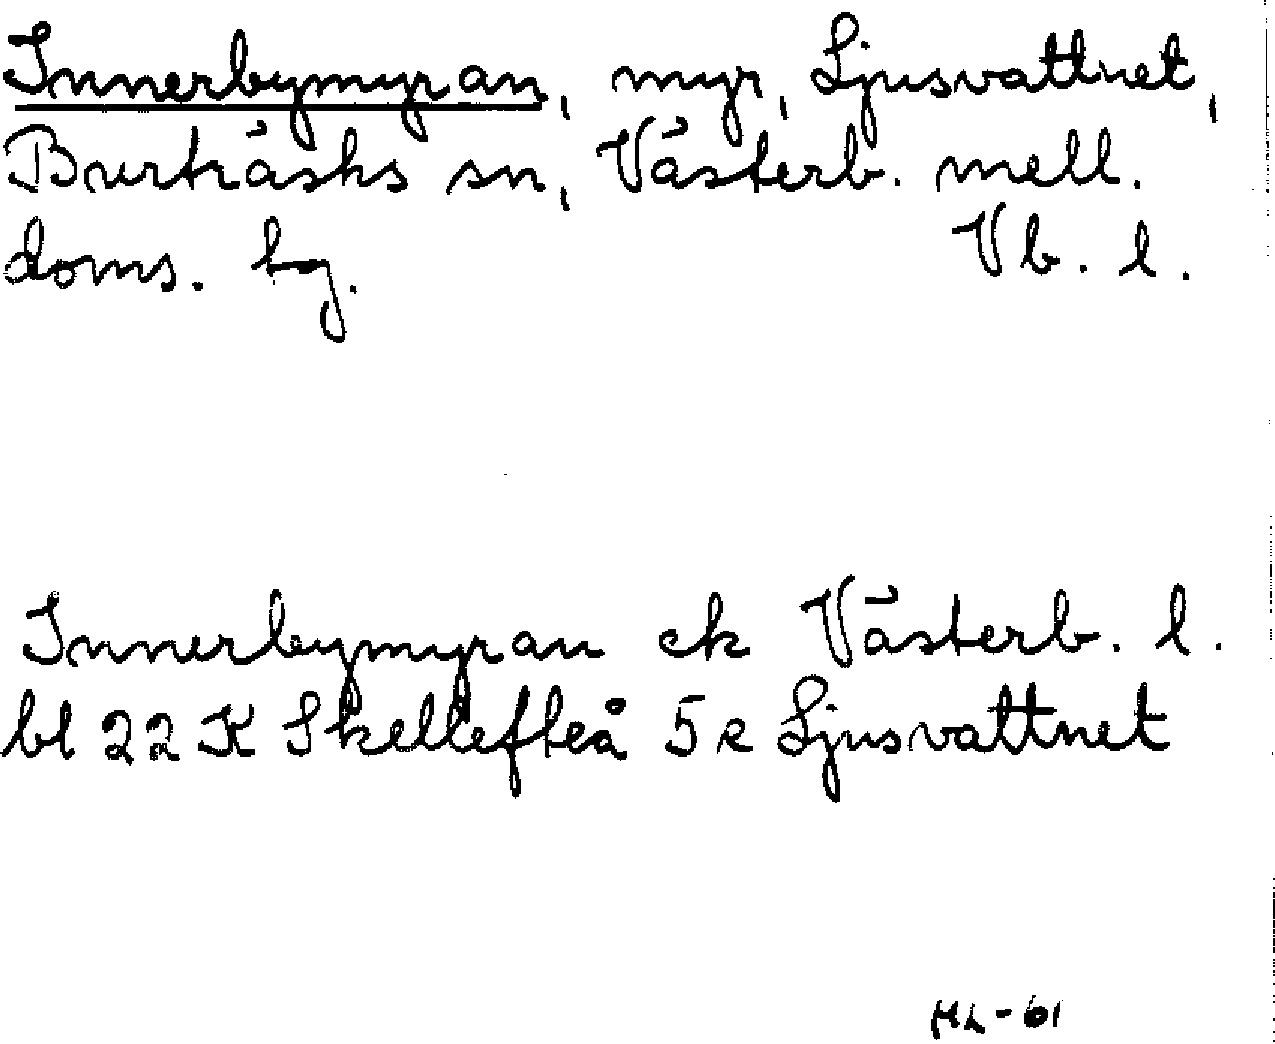 Innerbymyran, myr, Ljusvattnet,
Burträsks sn, Västerb. mell.
doms. hg. Vb. l.
Innerbymyran ek Västerb. l.
bl 22 K Skellefteå 5 e Ljusvattnet
HL-61